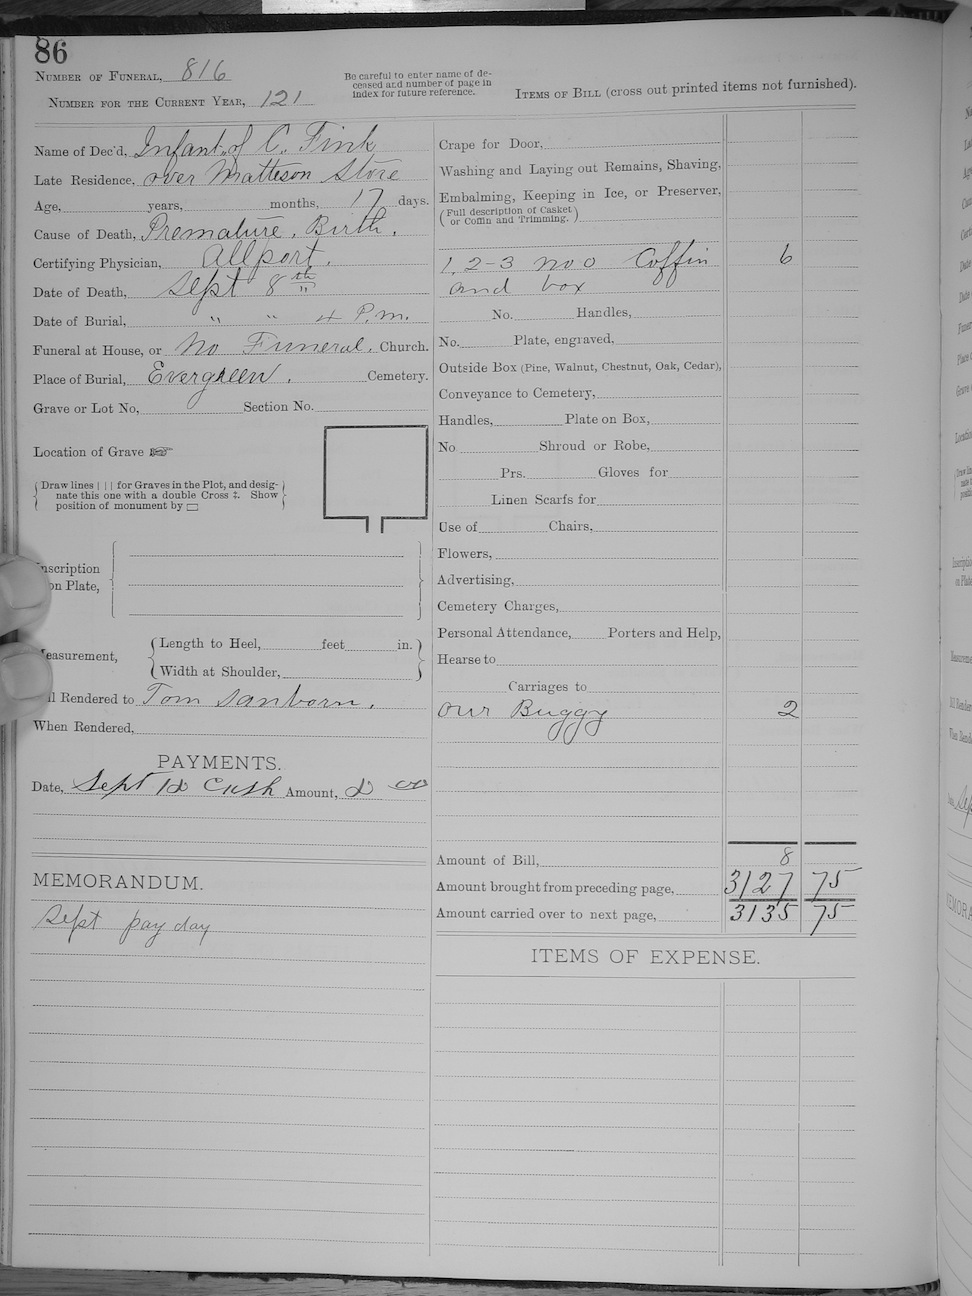 86
NUMBER OF FUNERAL, 816
NUMBER FOR THE CURRENT YEAR, 121
Be careful to enter name of de-
ceased and number of page in
index for future reference.
ITEMS OF BILL (cross out printed items not furnished).
Name of Dec'd, Infant of C. Fink
Late Residence, over Matteson Store
Age, years, months, 17 days.
Cause of Death, Premature. Birth.
Certifying Physician, Allport.
Date of Death, Sept 8th
Date of Burial, " " 4 P.m.
Funeral at House, or No Funeral. Church.
Place of Burial, Evergreen. Cemetery.
Grave or Lot No, Section No.
Location of Grave ☞
(Draw lines | | | for Graves in the Plot, and desig-
nate this one with a double Cross ‡. Show
position of monument by ▭)
nscription
on Plate,
easurement,
Length to Heel, feet in.
Width at Shoulder,
ll Rendered to Tom Sanborn.
When Rendered,
PAYMENTS.
Date, Sept 12 Cash Amount, 2 00
MEMORANDUM.
Sept pay day
Crape for Door,
Washing and Laying out Remains, Shaving,
Embalming, Keeping in Ice, or Preserver,
(Full description of Casket
or Coffin and Trimming.)
1, 2-3 no 0 Coffin 6
and box
No. Handles,
No. Plate, engraved,
Outside Box (Pine, Walnut, Chestnut, Oak, Cedar),
Conveyance to Cemetery,
Handles, Plate on Box,
No Shroud or Robe,
Prs. Gloves for
Linen Scarfs for
Use of Chairs,
Flowers,
Advertising,
Cemetery Charges,
Personal Attendance, Porters and Help,
Hearse to
Carriages to
our Buggy 2
Amount of Bill, 8
Amount brought from preceding page, 3127 75
Amount carried over to next page, 3135 75
ITEMS OF EXPENSE.